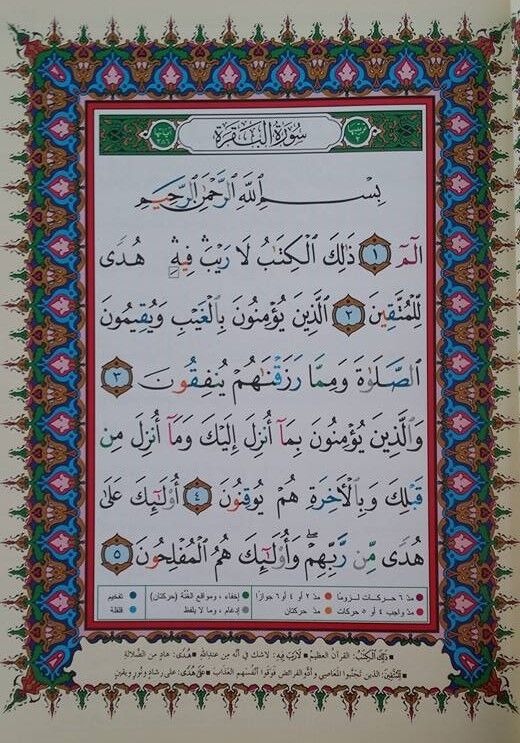 سُورَةُ الْبَقَرَةِ
بِسْمِ ٱللَّهِ ٱلرَّحْمَٰنِ ٱلرَّحِيمِ
الٓمٓ ١ ذَٰلِكَ ٱلْكِتَٰبُ لَا رَيْبَ ۛ فِيهِ ۛ هُدًى
لِّلْمُتَّقِينَ ٢ ٱلَّذِينَ يُؤْمِنُونَ بِٱلْغَيْبِ وَيُقِيمُونَ
ٱلصَّلَوٰةَ وَمِمَّا رَزَقْنَٰهُمْ يُنفِقُونَ ٣
وَٱلَّذِينَ يُؤْمِنُونَ بِمَآ أُنزِلَ إِلَيْكَ وَمَآ أُنزِلَ مِن
قَبْلِكَ وَبِٱلْآخِرَةِ هُمْ يُوقِنُونَ ٤ أُو۟لَٰٓئِكَ عَلَىٰ
هُدًى مِّن رَّبِّهِمْ ۖ وَأُو۟لَٰٓئِكَ هُمُ ٱلْمُفْلِحُونَ ٥
مدّ ٦ حركات لزومًا مدّ ٢ أو ٤ أو ٦ جوازًا إخفاء، ومواقع الغُنَّة (حركتان) تفخيم
مدّ واجب ٤ أو ٥ حركات مدّ حركتان إدغام، وما لا يلفظ قلقلة
ذَٰلِكَ الْكِتَٰبُ: القرآن العظيم لَا رَيْبَ فِيهِ: لاشك في أنّه مِن عندِالله هُدًى: هادٍ من الضَّلالة
لِلْمُتَّقِينَ: الذين تَجنَّبوا المعَاصِي وأدَّوا الفرائض فوَقَوا أنْفُسَهم العذابَ عَلَىٰ هُدًى: على رشادٍ ونُورٍ ويقينٍ